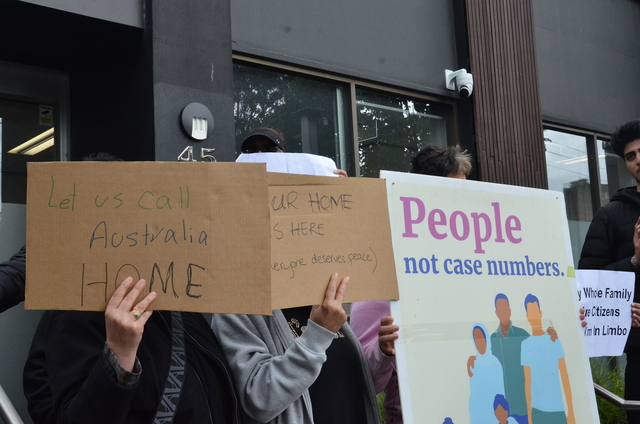 45
Let us call
Australia
HOME
UR HOME
S HERE
everyone deserves peace)
People
not case numbers.
y Whole Family
e Citizens
'm In Limbo